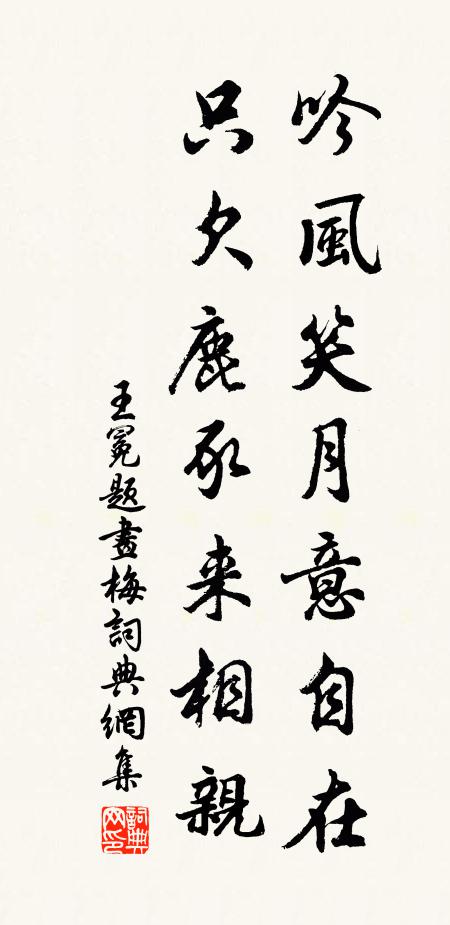 吟風笑月意自在
只欠鹿豕来相親
王冕題畫梅詞典網集
詞典網印